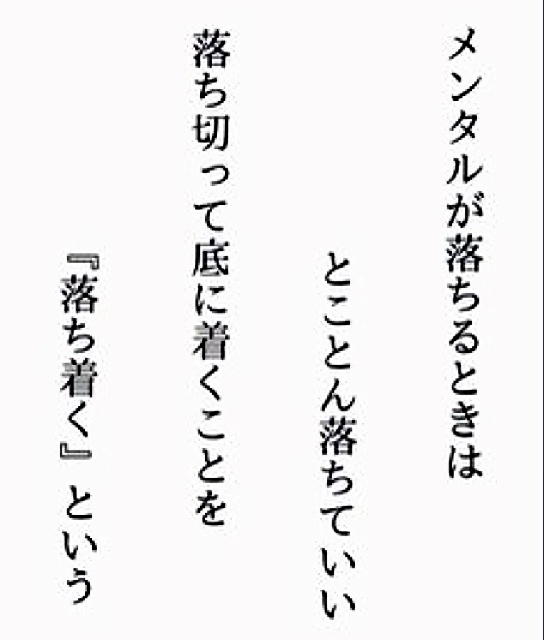 メンタルが落ちるときは
とことん落ちていい
落ち切って底に着くことを
『落ち着く』という